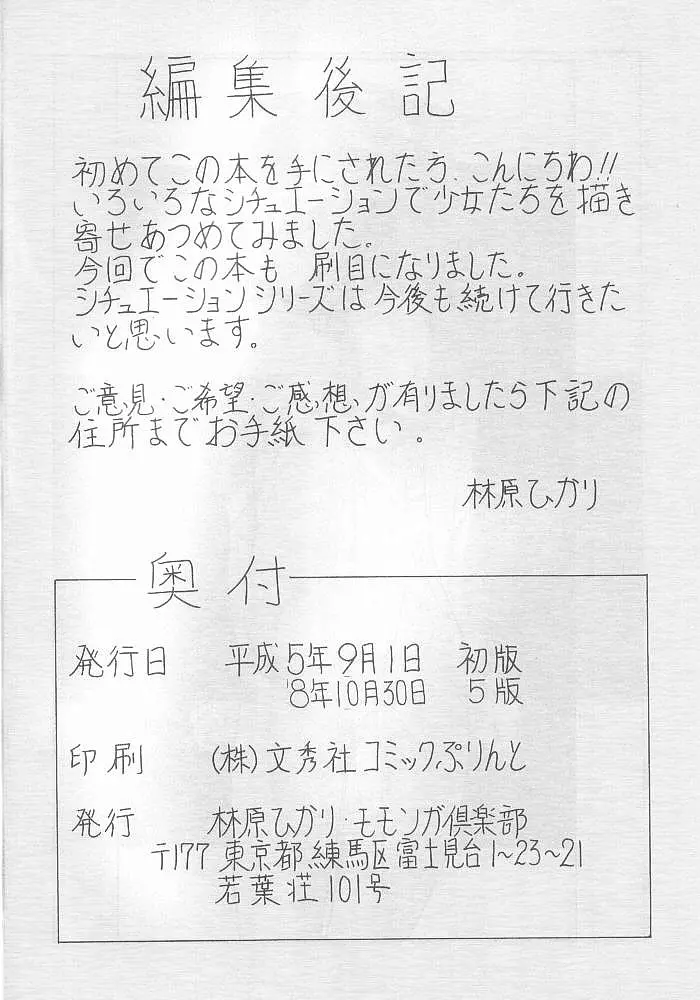 編集後記
初めてこの本を手にされた方、こんにちわ!!
いろいろなシチュエーションで少女たちを描き
寄せあつめてみました。
今回でこの本も 刷目になりました。
シチュエーションシリーズは今後も続けて行きた
いと思います。
ご意見・ご希望・ご感想が有りましたら下記の
住所までお手紙下さい。
林原ひかり
奥付
発行日 平成5年9月1日 初版
'8年10月30日 5版
印刷 (株)文秀社コミックぷりんと
発行 林原ひかり・モモンガ倶楽部
〒177 東京都練馬区富士見台1~23~21
若葉荘101号